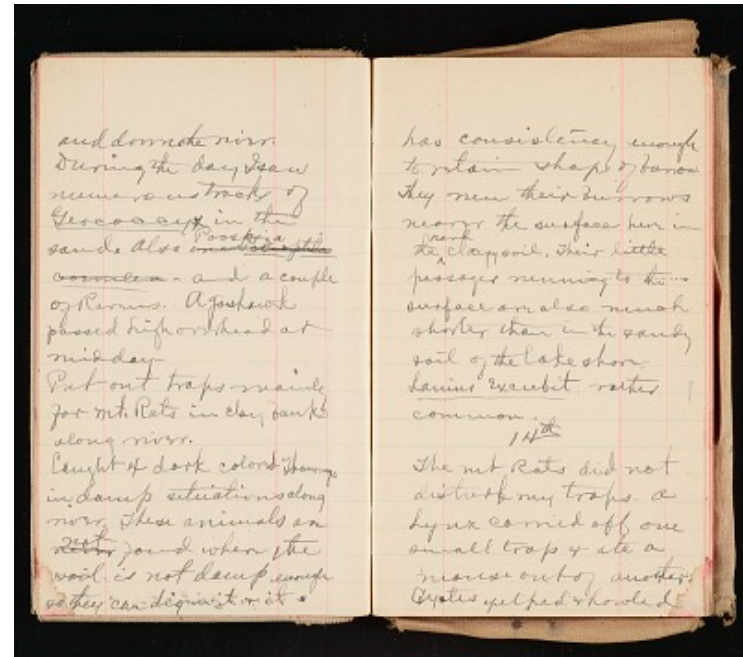 and down the river.
During the day I saw
numerous tracks of
Geococcyx in the
sand. Also Poospiza
- and a couple
of Ravens. A goshawk
passed high overhead at
midday-
Put out traps mainly
for Mt. Rats in clay banks
along river.
Caught 4 dark colord Thomomys
in damp situations along
river. These animals are
not found where the
soil is not damp enough
so they can dig in it & it
has consistency enough
to retain shape of burrow
They run their burrows
nearer the surface here in
the clay soil. Their little
passages running to the
surface are also much
shorter than in the sandy
soil of the lake shore.
Lanius Excubit. rather
common.
14th
The Mt Rats did not
disturb my traps. A
Lynx carried off one
small trap & ate a
mouse out of another.
Coyotes yelped & howled